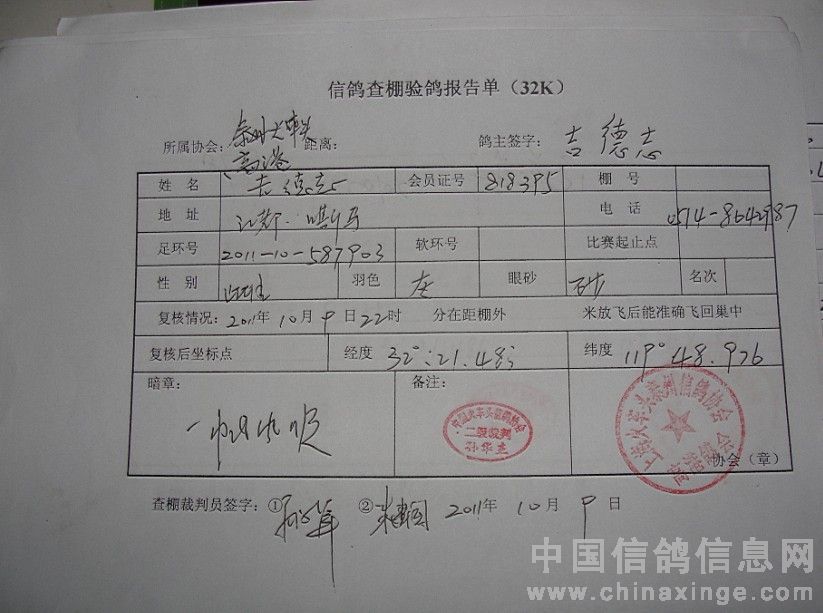 信鸽查棚验鸽报告单（32K）
所属协会： 距离： 鸽主签字：吉德志
高港
姓名 吉德志 会员证号 818395 棚号
地址 电话 0514-8642987
足环号 2011-10-587903 软环号 比赛起止点
性别 雌 羽色 灰 眼砂 砂 名次
复核情况：2011年10月9日22时 分在距棚外 米放飞后能准确飞回巢中
复核后坐标点 经度 32°:21.48 纬度 119°48.926
暗章： 备注：
二级裁判
孙华志
协会（章）
查棚裁判员签字：① ② 2011年10月9日
中国信鸽信息网
www.chinaxinge.com